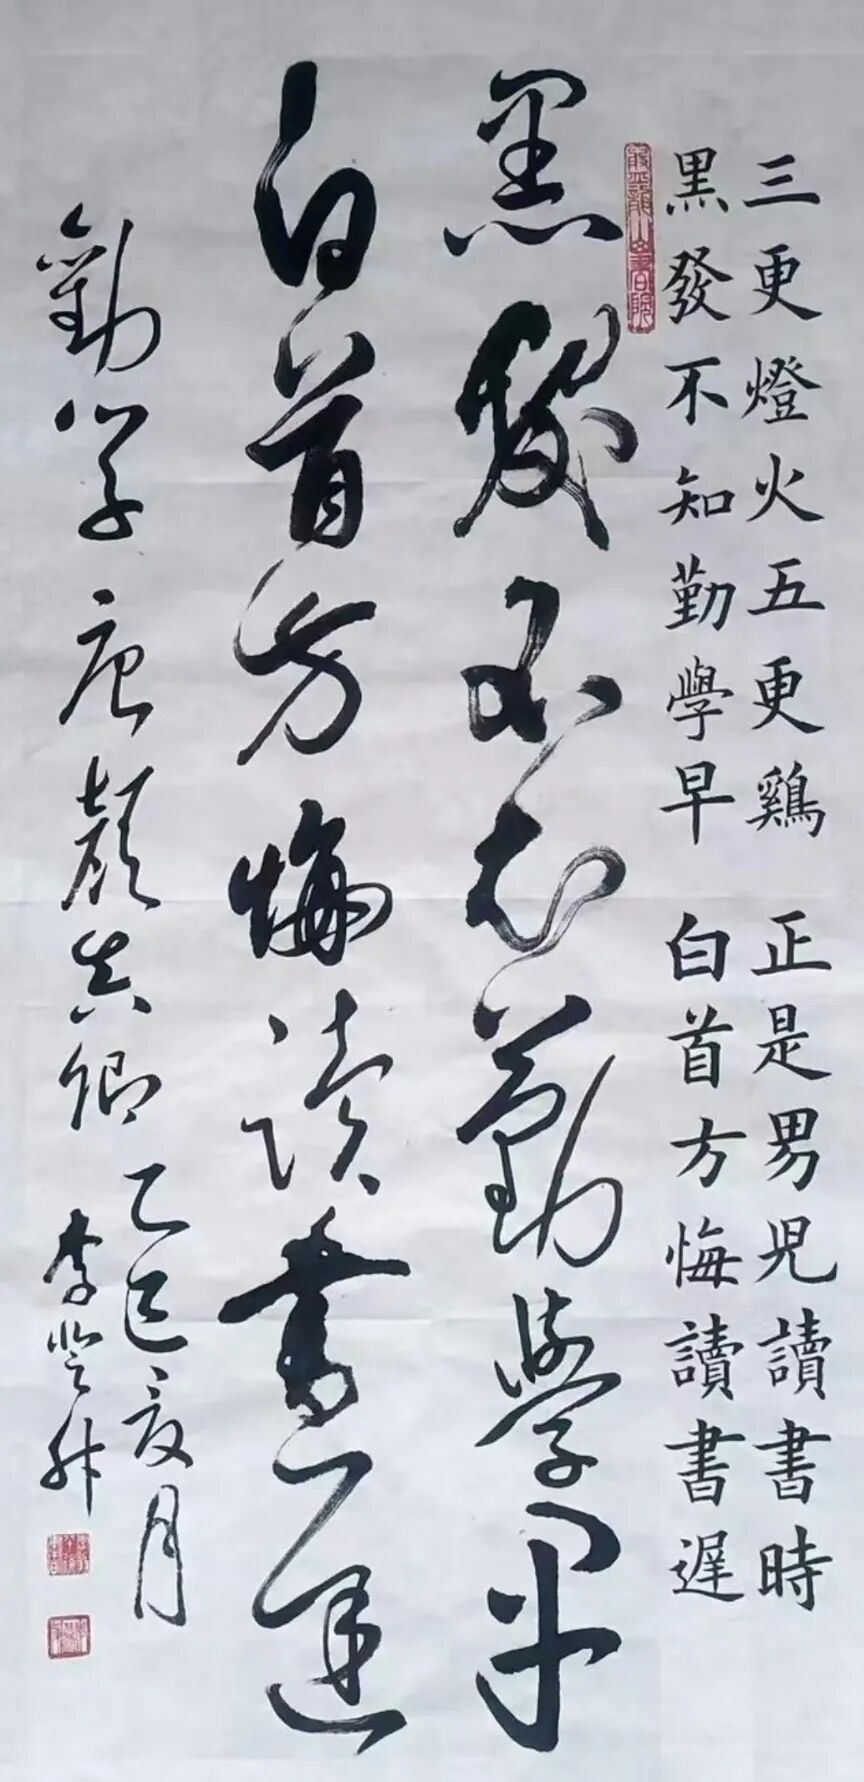 三更燈火五更鷄 正是男児讀書時
黒發不知勤學早 白首方悔讀書遅
黑發不知勤學早
白首方悔讀書遲
勸學 唐 顏真卿
乙巳夏月